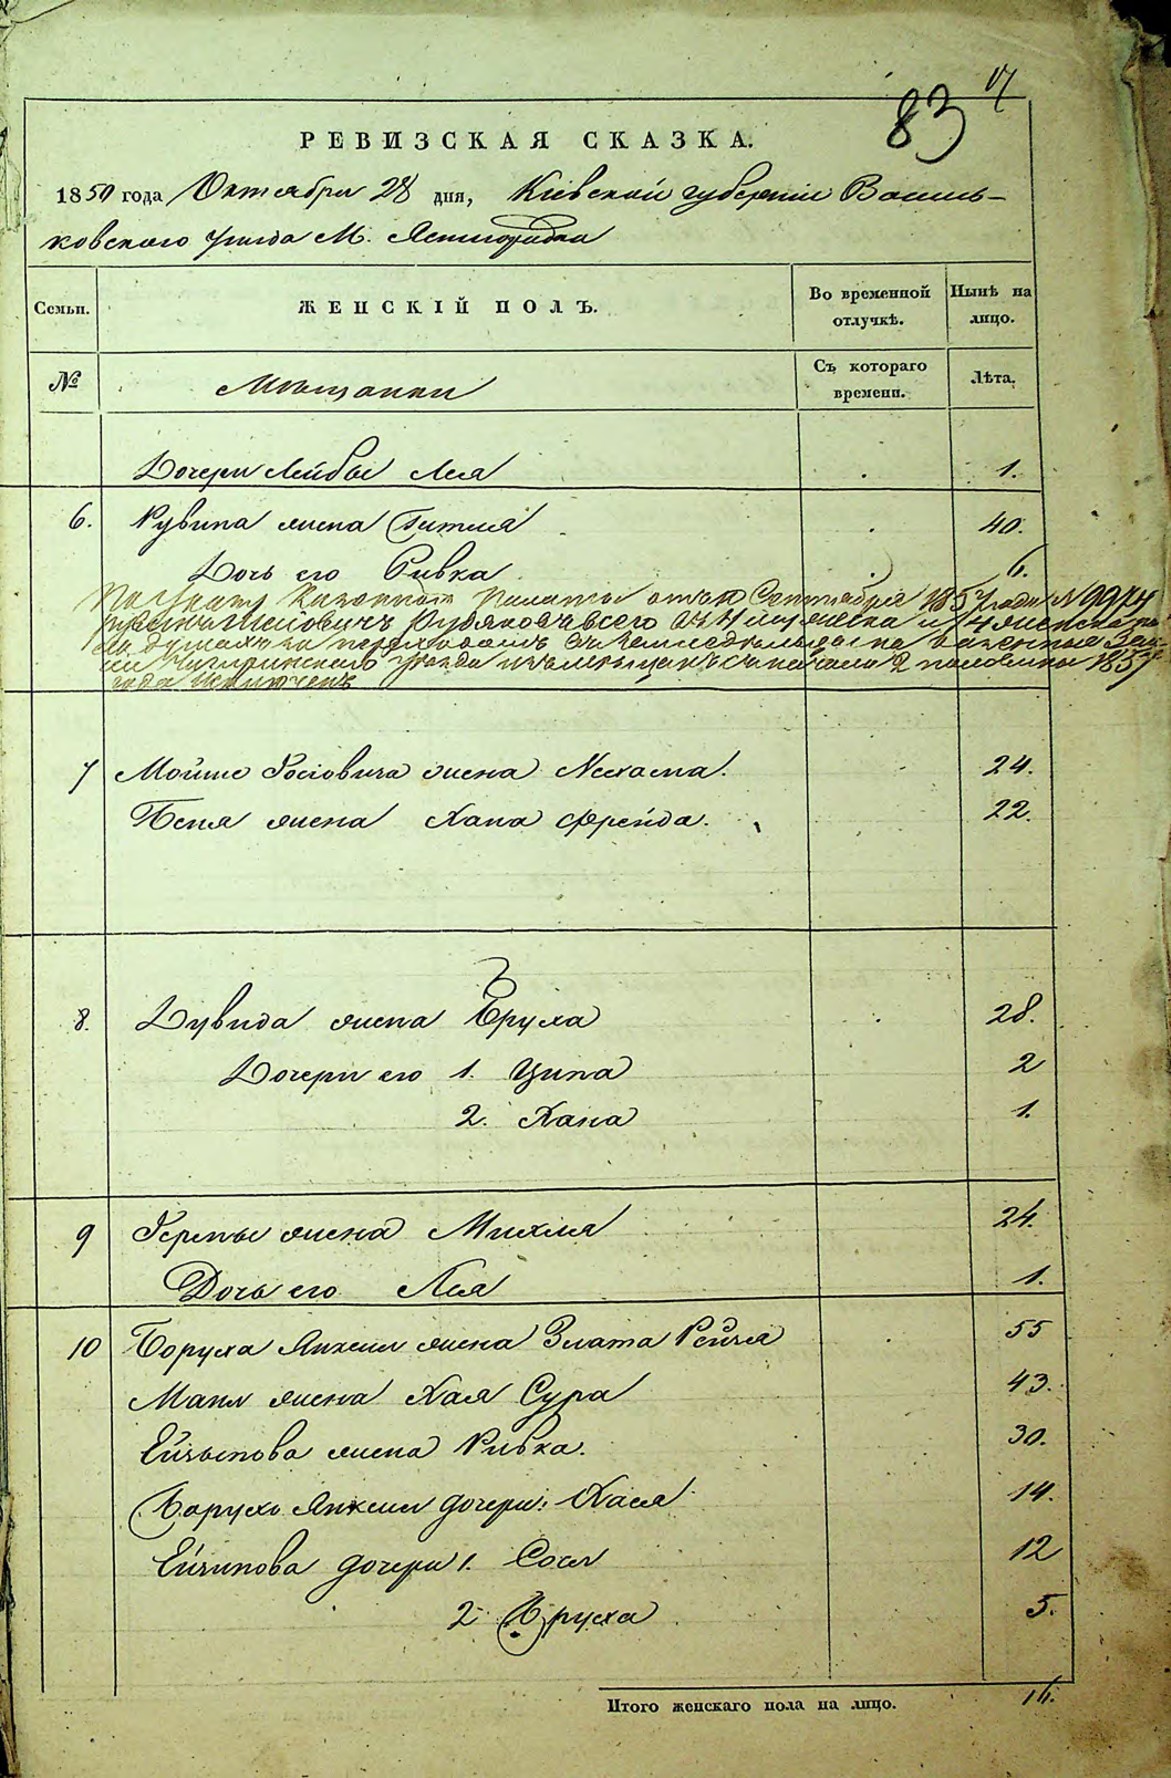 83 17
РЕВИЗСКАЯ СКАЗКА.
1850 года Октября 28 дня, Кіевской губерніи Василь-
ковского уезда М. Ясногородка
Семьи. ЖЕНСКІЙ ПОЛЪ. Во временной отлучкѣ. Нынѣ на лицо.
№ Мѣщанки Съ котораго времени. Лѣта.
Дочери Лейбы Лея 1.
6. Рувина жена Гитля 40.
Дочь его Ривка 6.
По Указу Казенной Палаты отъ Сентября 1857 года № 9974
душахъ за переходомъ въ земледельцы на казенные Зем
ли Чигиринского уезда изъ мещанъ съ начала 2 половины 1857
года Исключенъ
7 Мойше Іосіовича жена Нехама. 24.
Беня жена Хана Фрейда. 22.
8. Дувида жена Бруха 28.
Дочери его 1. Ципа 2
2. Хана 1.
9 Герша жена Михля 24.
Дочь его Лея 1.
10 Боруха Янкеля жена Злата Рейзя 55
Маня жена Хая Сура 43.
жена Ривка. 30.
Борухъ Янкеля дочери: Хася 14.
дочери 1. Сося 12
2 Бруха 5.
Итого женскаго пола на лицо. 16.